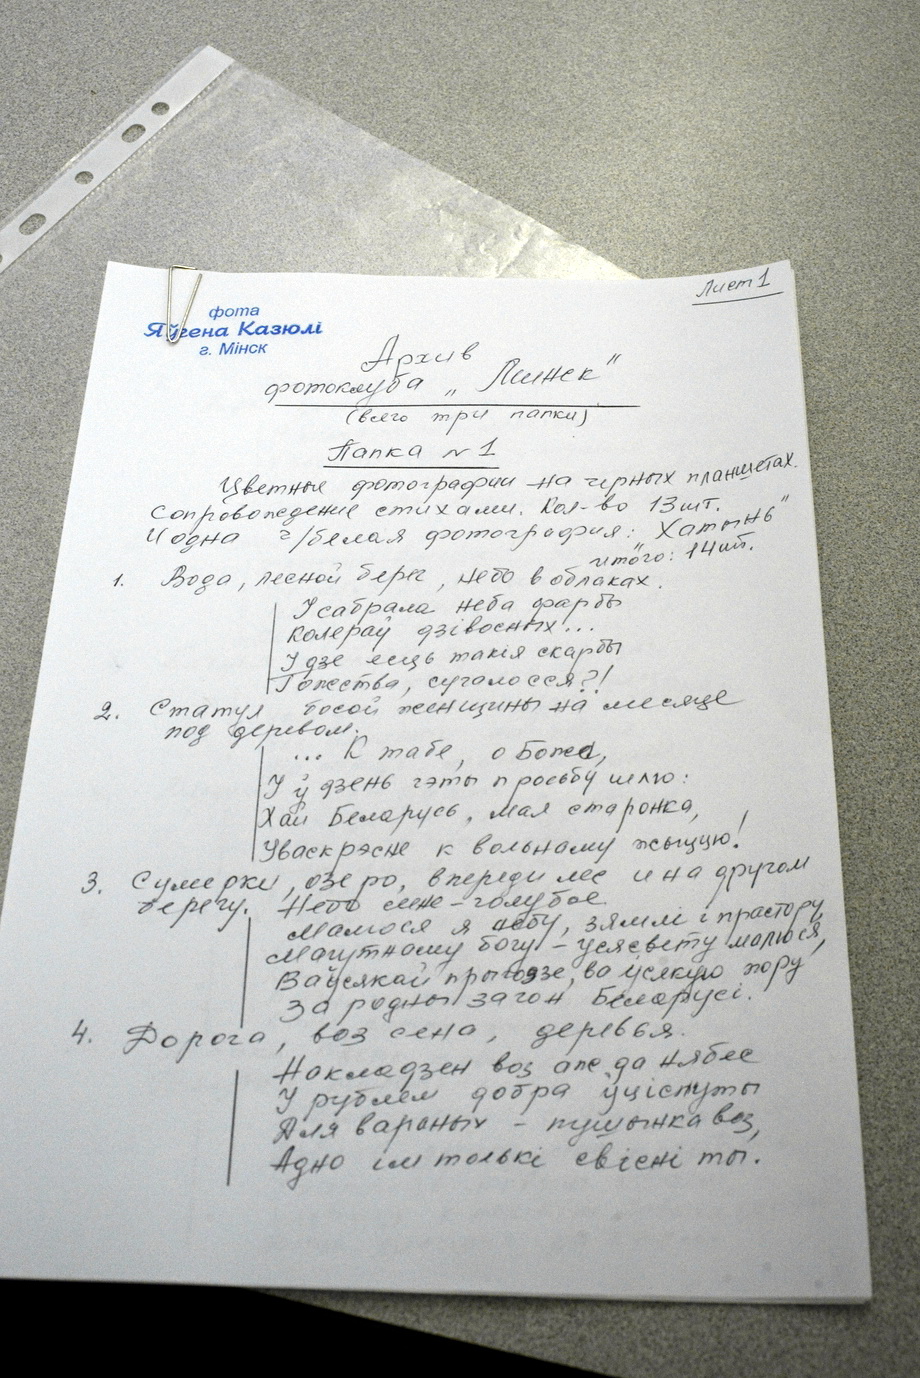 Лист 1
фота
Яўгена Казюлі
г. Мінск
Архив
фотоклуба „Минск"
(всего три папки)
Папка №1
Цветные фотографии на чёрных планшетах.
Сопровождение стихами. Кол-во 13 шт.
И одна ч/белая фотография: „Хатынь"
итого: 14 шт.
1. Вода, лесной берег, небо в облаках.
У сабрала неба фарбы
Колераў дзівосных...
І дзе ёсць такія скарбы
Гопства, сугалосся?!
2. Статуя босой женщины на месяце
под деревом.
... К табе, о Божа,
У ў дзень гэты просьбу шлю:
Хай Беларусь, мая старонка,
Уваскрэсне к вольнаму жыццю!
3. Сумерки, озеро, впереди лес и на другом
берегу. Небо сине-голубое.
Малюся я небу, зямлі і прастору,
Магутнаму богу – усясвету малюся,
Ва ўсякай прыгодзе, ва ўсякую пору
За родны загон Беларусі.
4. Дорога, воз сена, деревья.
Накладзен воз аж да нябес
І рублём добра ўціснуты
Для вараных – пушынка воз,
Адно ім толькі свісні ты.